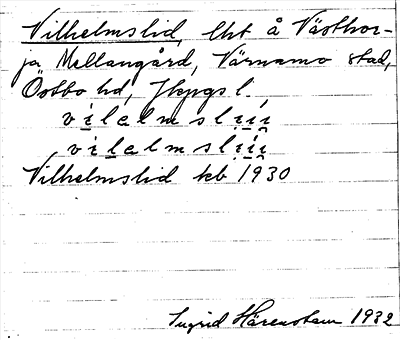 Vilhelmslid, lht å Västhor-
ja Mellangård, Värnamo stad,
Östbo hd, Jkpgs l.
vilelmsliii
vilelmsliii
Vilhelmslid kb 1930
Ingrid Härenstam 1932